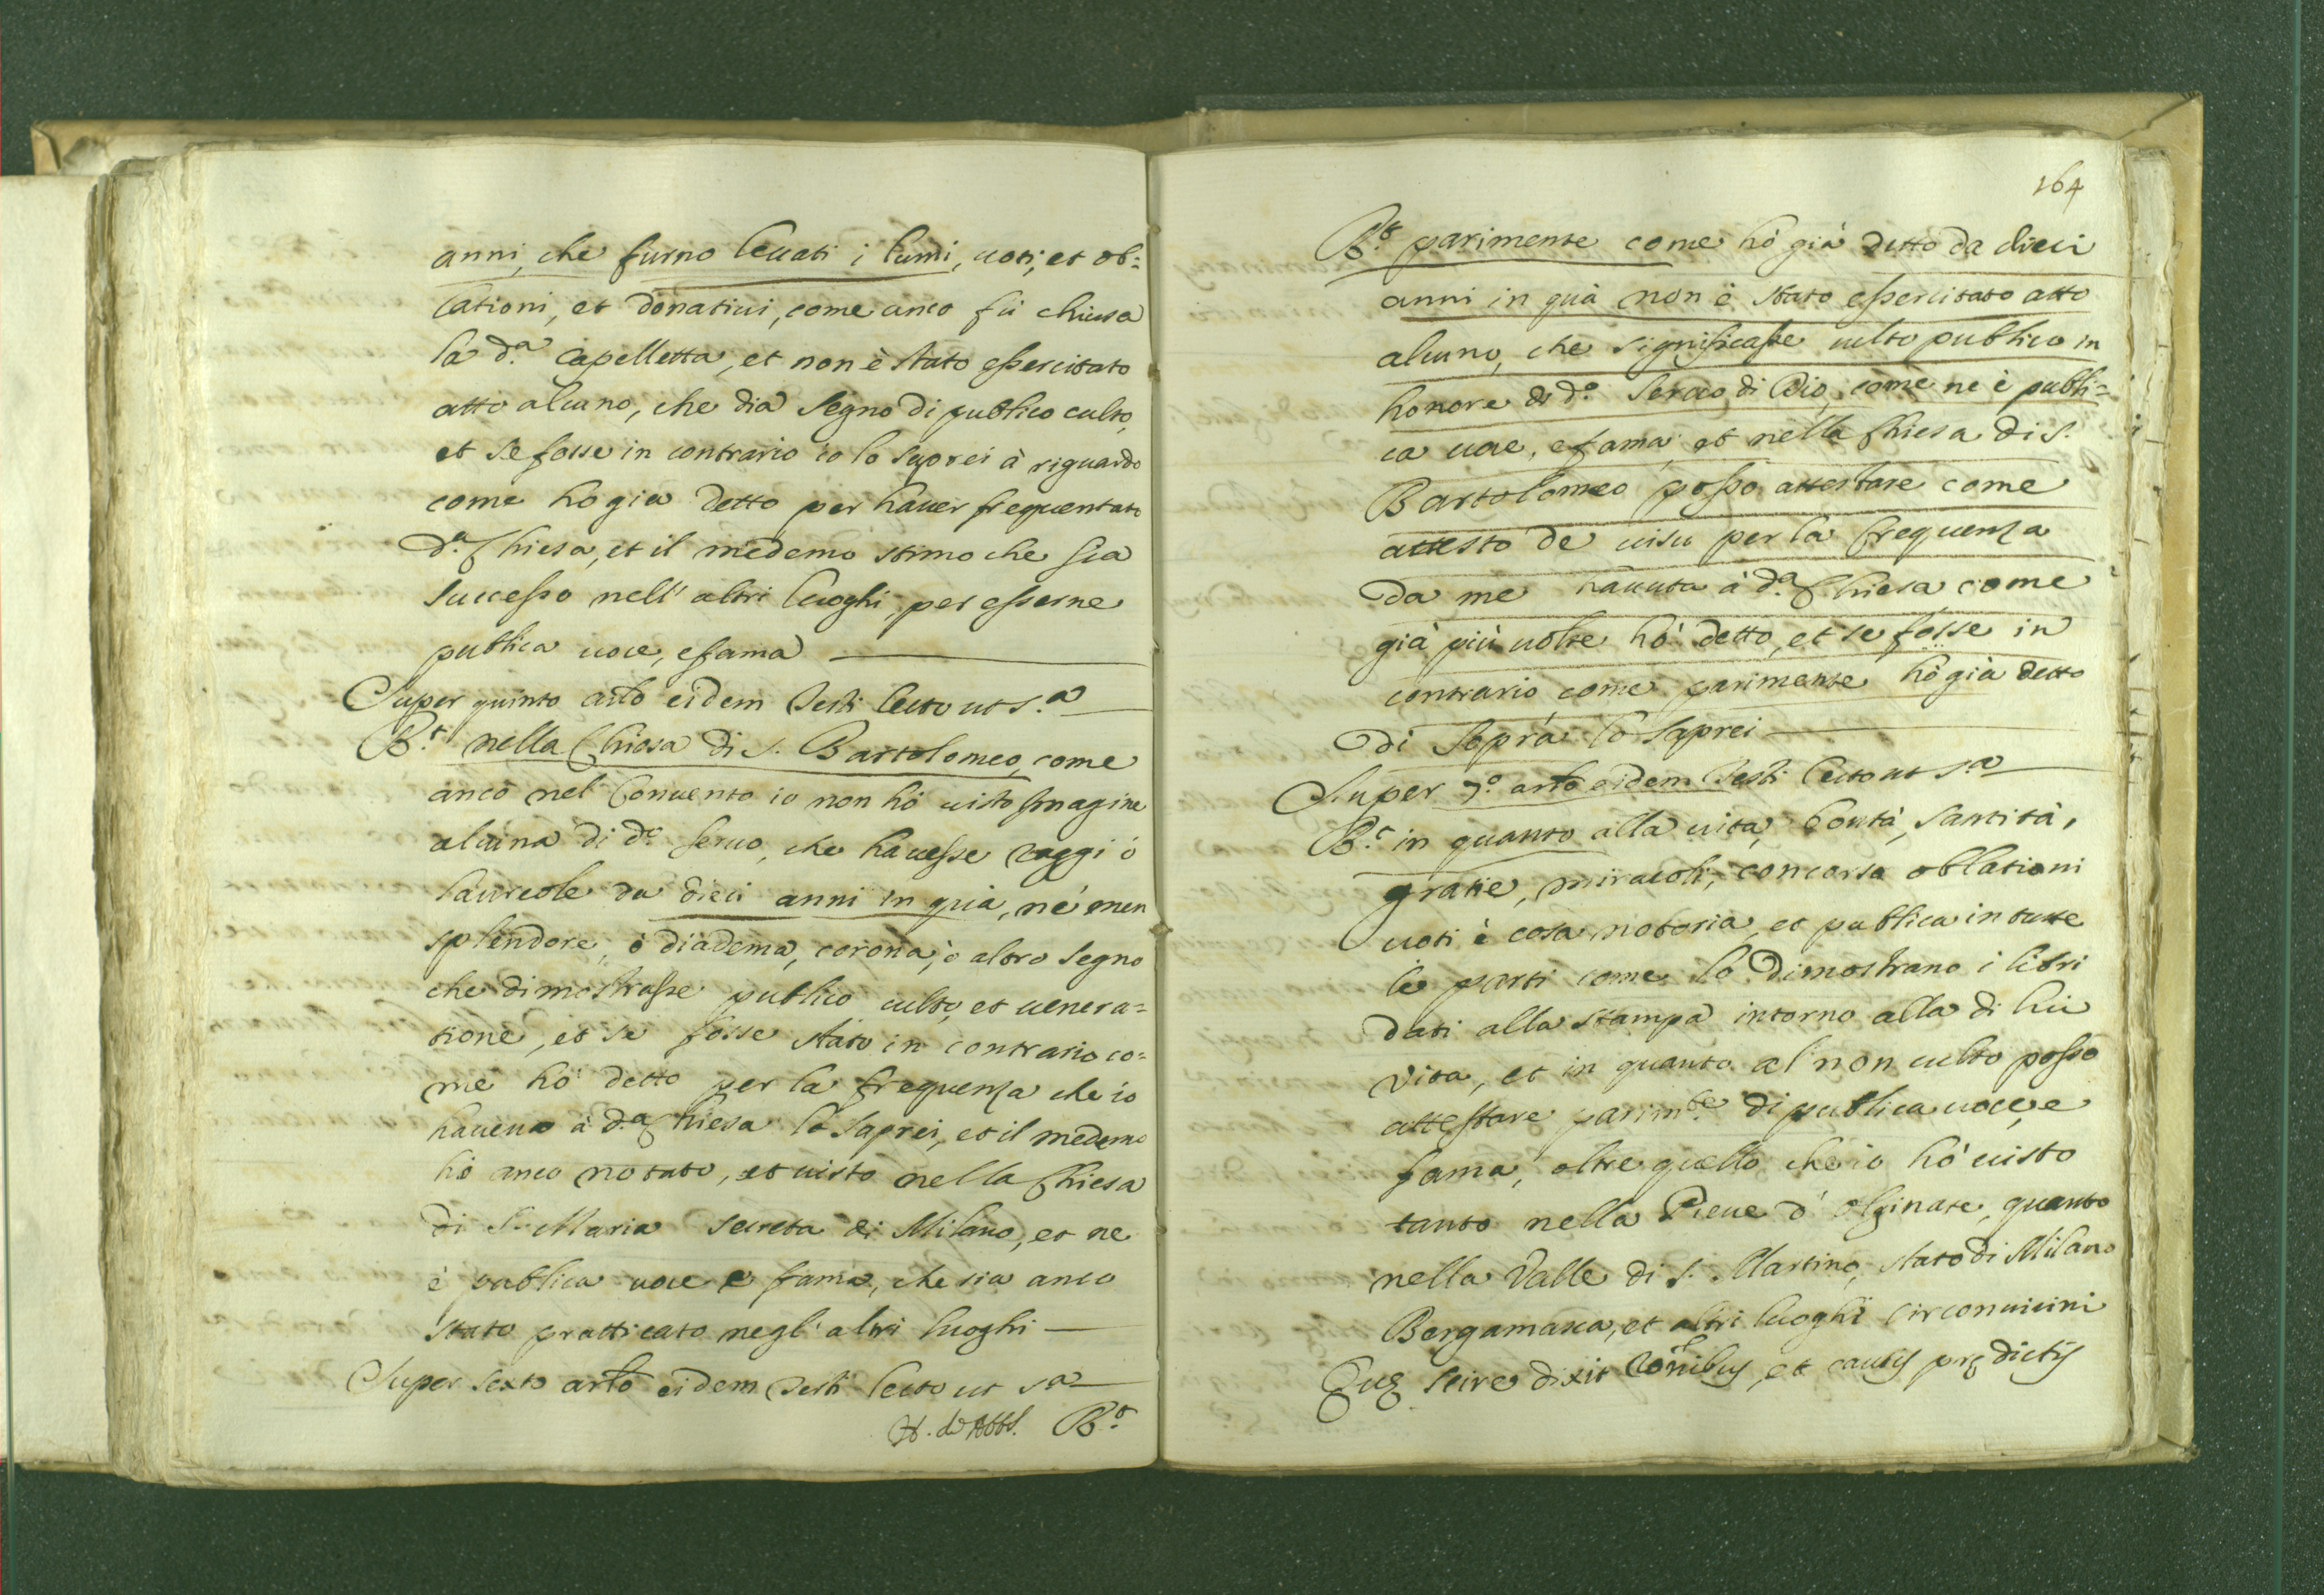 anni, che furno leuati i lumi, uoti, et ob=
lationi, et donatiui, come anco fù chiusa
la d.a Capelletta, et non è stato essercitato
atto alcuno, che dia segno di publico culto,
et se fosse in contrario io lo saprei à riguardo
come ho gia detto per hauer frequentato
d.a Chiesa, et il medemo stimo che sia
successo nell' altri luoghi, per esserne
publica uoce, e fama
Super quinto arlo eidem Testi lecto ut s.a
R.t nella Chiesa di S. Bartolomeo, come
anco nel Conuento io non hò uisto Imagine
alcuna di d.o seruo, che hauesse raggi ò
laureole da dieci anni in quà, nè men
splendore, ò diadema, corona, ò altro segno
che dimostrasse publico culto, et uenera=
tione, et se fosse stato in contrario co=
me hò detto per la frequenza che io
haueuo à d.a Chiesa lo saprei, et il medemo
hò anco notato, et uisto nella Chiesa
di S. Maria secreta di Milano, et ne
è publica uoce e fama, che sia anco
stato pratticato negl' altri luoghi
Super sexto arlo eidem Testi lecto ut s.a
R.t
164
R.t parimente come hò già detto da dieci
anni in quà non è stato essercitato atto
alcuno, che significasse culto publico in
honore di d.o Seruo di Dio, come ne è publi=
ca uoce, e fama, et nella Chiesa di S.
Bartolomeo posso attestare come
attesto de uisu per la frequenza
da me hauuta à d.a Chiesa come
già più uolte hò detto, et se fosse in
contrario come parimente hò già detto
di sopra lo saprei
Super 7.o arlo eidem Testi lecto ut s.a
R.t in quanto alla uita, bontà, santità,
gratie, miracoli, concorso oblationi
uoti è cosa notoria, et publica in tutte
le parti come lo dimostrano i libri
dati alla stampa intorno alla di lui
vita, et in quanto al non culto posso
attestare parim.te di publica uoce, e
fama, oltre quello che io hò uisto
tanto nella Pieue d' Olginate, quanto
nella Valle di S. Martino, stato di Milano
Bergamasca, et altri luoghi circonuicini
Quę scire dixit rōnibus, et causis prędictis